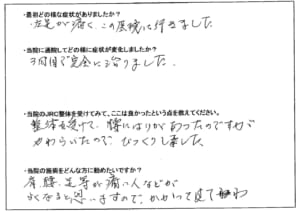 ・最初どの様な症状がありましたか?
左足が痛く、この医院に行きました
・当院に通院してどの様に症状が変化しましたか?
3回目で完全に治りました.
・当院のJRC整体を受けてみて、ここは良かったという点を教えてください。
整体を受けて、腰にはりがあったのですが
やわらいだので、びっくりしました。
・当院の施術をどんな方に勧めたいですか?
肩、腰、足等が痛い人などが
良くなると思いますので、かかって見ては